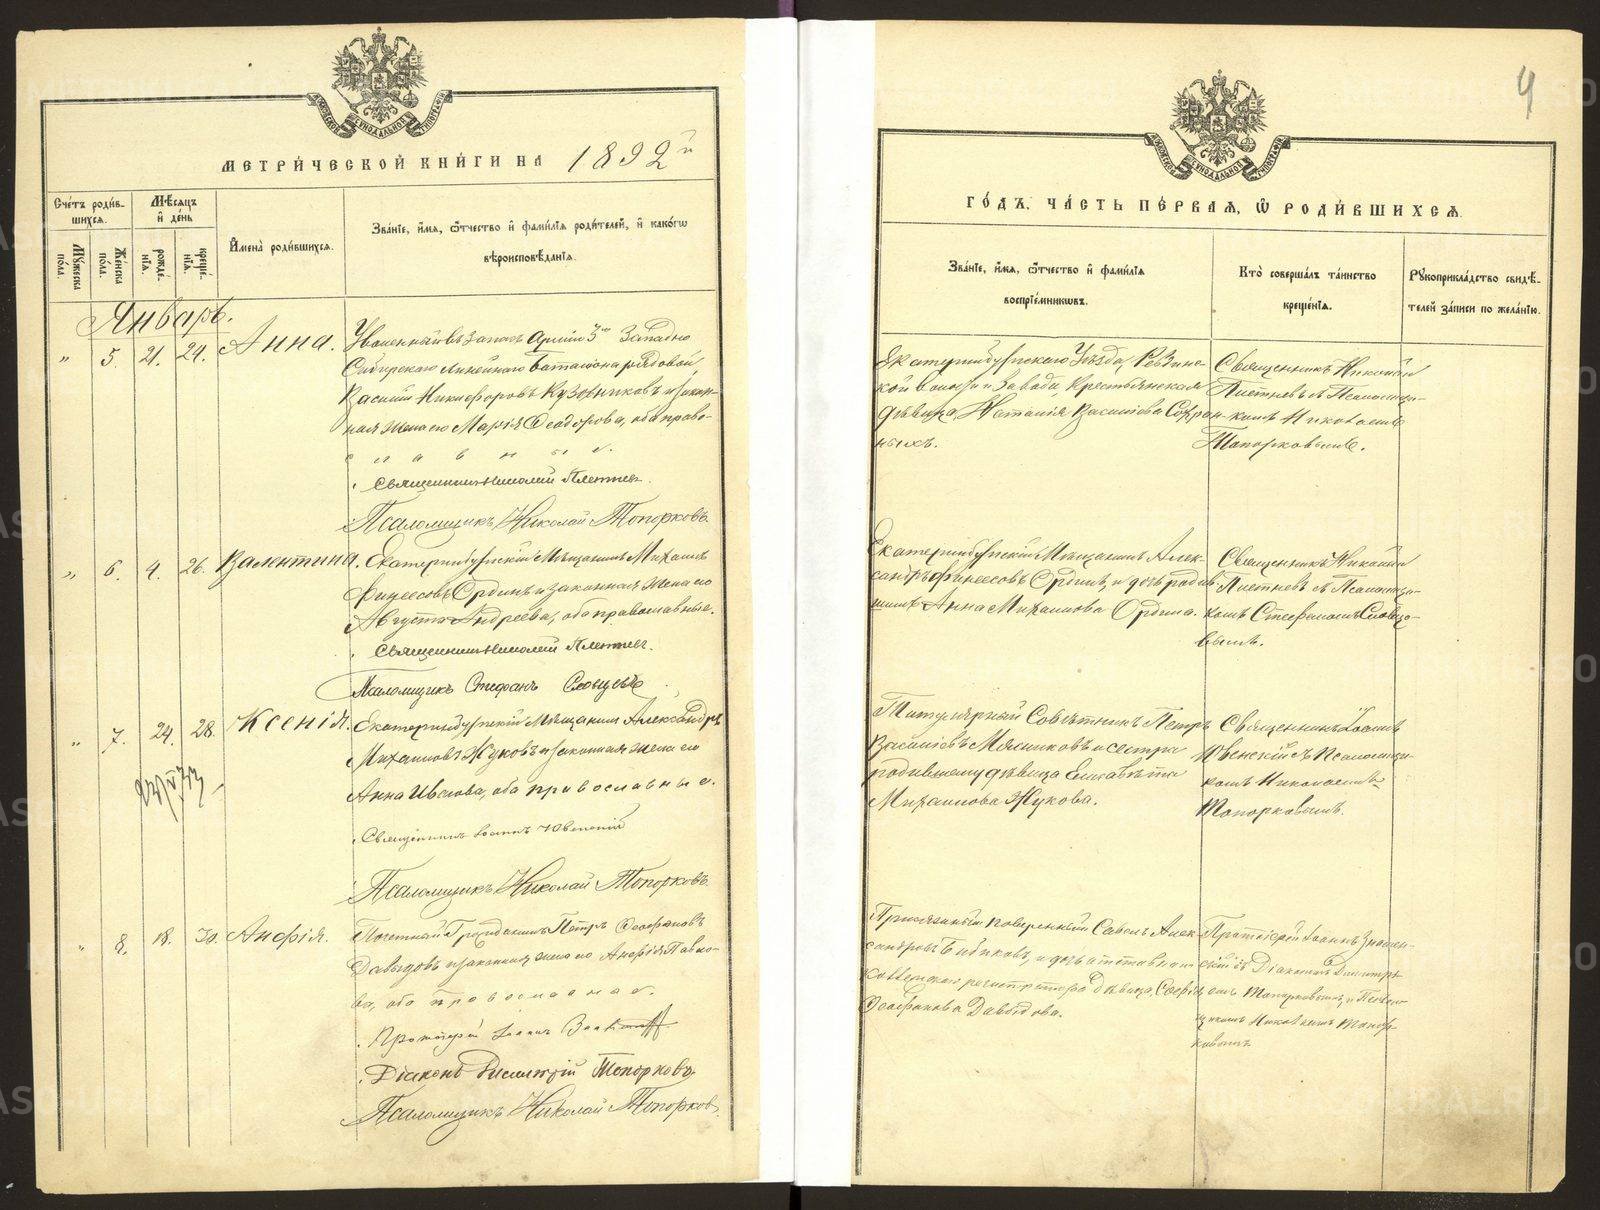 МЕТРИ́ЧЕСКОЙ КНИ́ГИ НА 1892й
Сче́тъ роди́в-
шихся.
Мѣсяцъ
и де́нь
Му́жеска
по́ла.
Же́нска
по́ла.
рожде́-
нія.
креще́-
нія.
Имена̀ роди́вшихся.
Зва́ніе, и́мя, ѻ҆́тчество и фами́лія роди́телей, и како́гѡ
вѣроисповѣ́данія.
Январь.
„ 5. 21. 24. Анна.
Уволенный въ запасъ Арміи 3го Западно
Сибирскаго Линейнаго баталіона рядовой
Василій Никифоровъ Кузовниковъ и закон-
ная жена его Марія Ѳеодорова, оба право-
славные.
Священникъ Николай Плетнев.
Псаломщикъ Николай Топорковъ
„ 6. 4. 26. Валентина.
Екатеринбургскій Мѣщанинъ Михаилъ
Финеесовъ Ординъ и законная жена его
Августа Андреева, оба православные.
Священникъ Николай Плетнев.
Псаломщикъ Стефанъ Словцовъ
„ 7. 24. 28. Ксенія.
Екатеринбургскій Мѣщанинъ Александръ
Михаиловъ Жуковъ и законная жена его
Анна Иванова, оба православные.
Священникъ Іоаннъ Ювенскій
Псаломщикъ Николай Топорковъ
„ 8. 18. 30. Анфія.
Почетный Гражданинъ Петръ Ѳеофановъ
Давыдовъ и законная жена его Анфія Павло-
ва, оба православные.
Протоіерей Іоаннъ
Діаконъ Димитрій Топорковъ
Псаломщикъ Николай Топорковъ
4
ГО́ДЪ, ЧА́СТЬ ПЕ́РВАЯ, Ѡ҆ РОДИ́ВШИХСЯ.
Зва́ніе, и́мя, ѻ҆́тчество и фами́лія
воспріе́мниковъ.
Кто̀ соверша́лъ та́инство
креще́нія.
Рукоприкла́дство свидѣ́-
телей за́писи по жела́нію.
Екатеринбургскаго Уѣзда, Ревдин-
ской волости и завода, Крестьянская
дѣвица Наталія Василіева Софрон-
ныхъ.
Священникъ Николай
Плетневъ съ Псаломщи-
комъ Николаемъ
Топорковымъ.
Екатеринбургскій Мѣщанинъ Алек-
сандръ Финеесовъ Ординъ, и дочь родив-
шихъ Анна Михаилова Ордина.
Священникъ Николай
Плетневъ съ Псаломщи-
комъ Стефаномъ Словцо-
вымъ.
Титулярный Совѣтникъ Петръ
Василіевъ Мясниковъ и сестра
родившему дѣвица Елисавета
Михаилова Жукова.
Священникъ Іоаннъ
Ювенскій съ Псаломщи-
комъ Николаемъ
Топорковымъ.
Присяжный повѣренный Савелъ Алек-
сандровъ Бибиковъ, и дочь отставнаго
коллежскаго регистратора дѣвица Софія
Ѳеофанова Давыдова.
Протоіерей Іоаннъ Знамен-
скій съ Діакономъ Димитрі-
емъ Топорковымъ и Псалом-
щикомъ Николаемъ Топор-
ковымъ